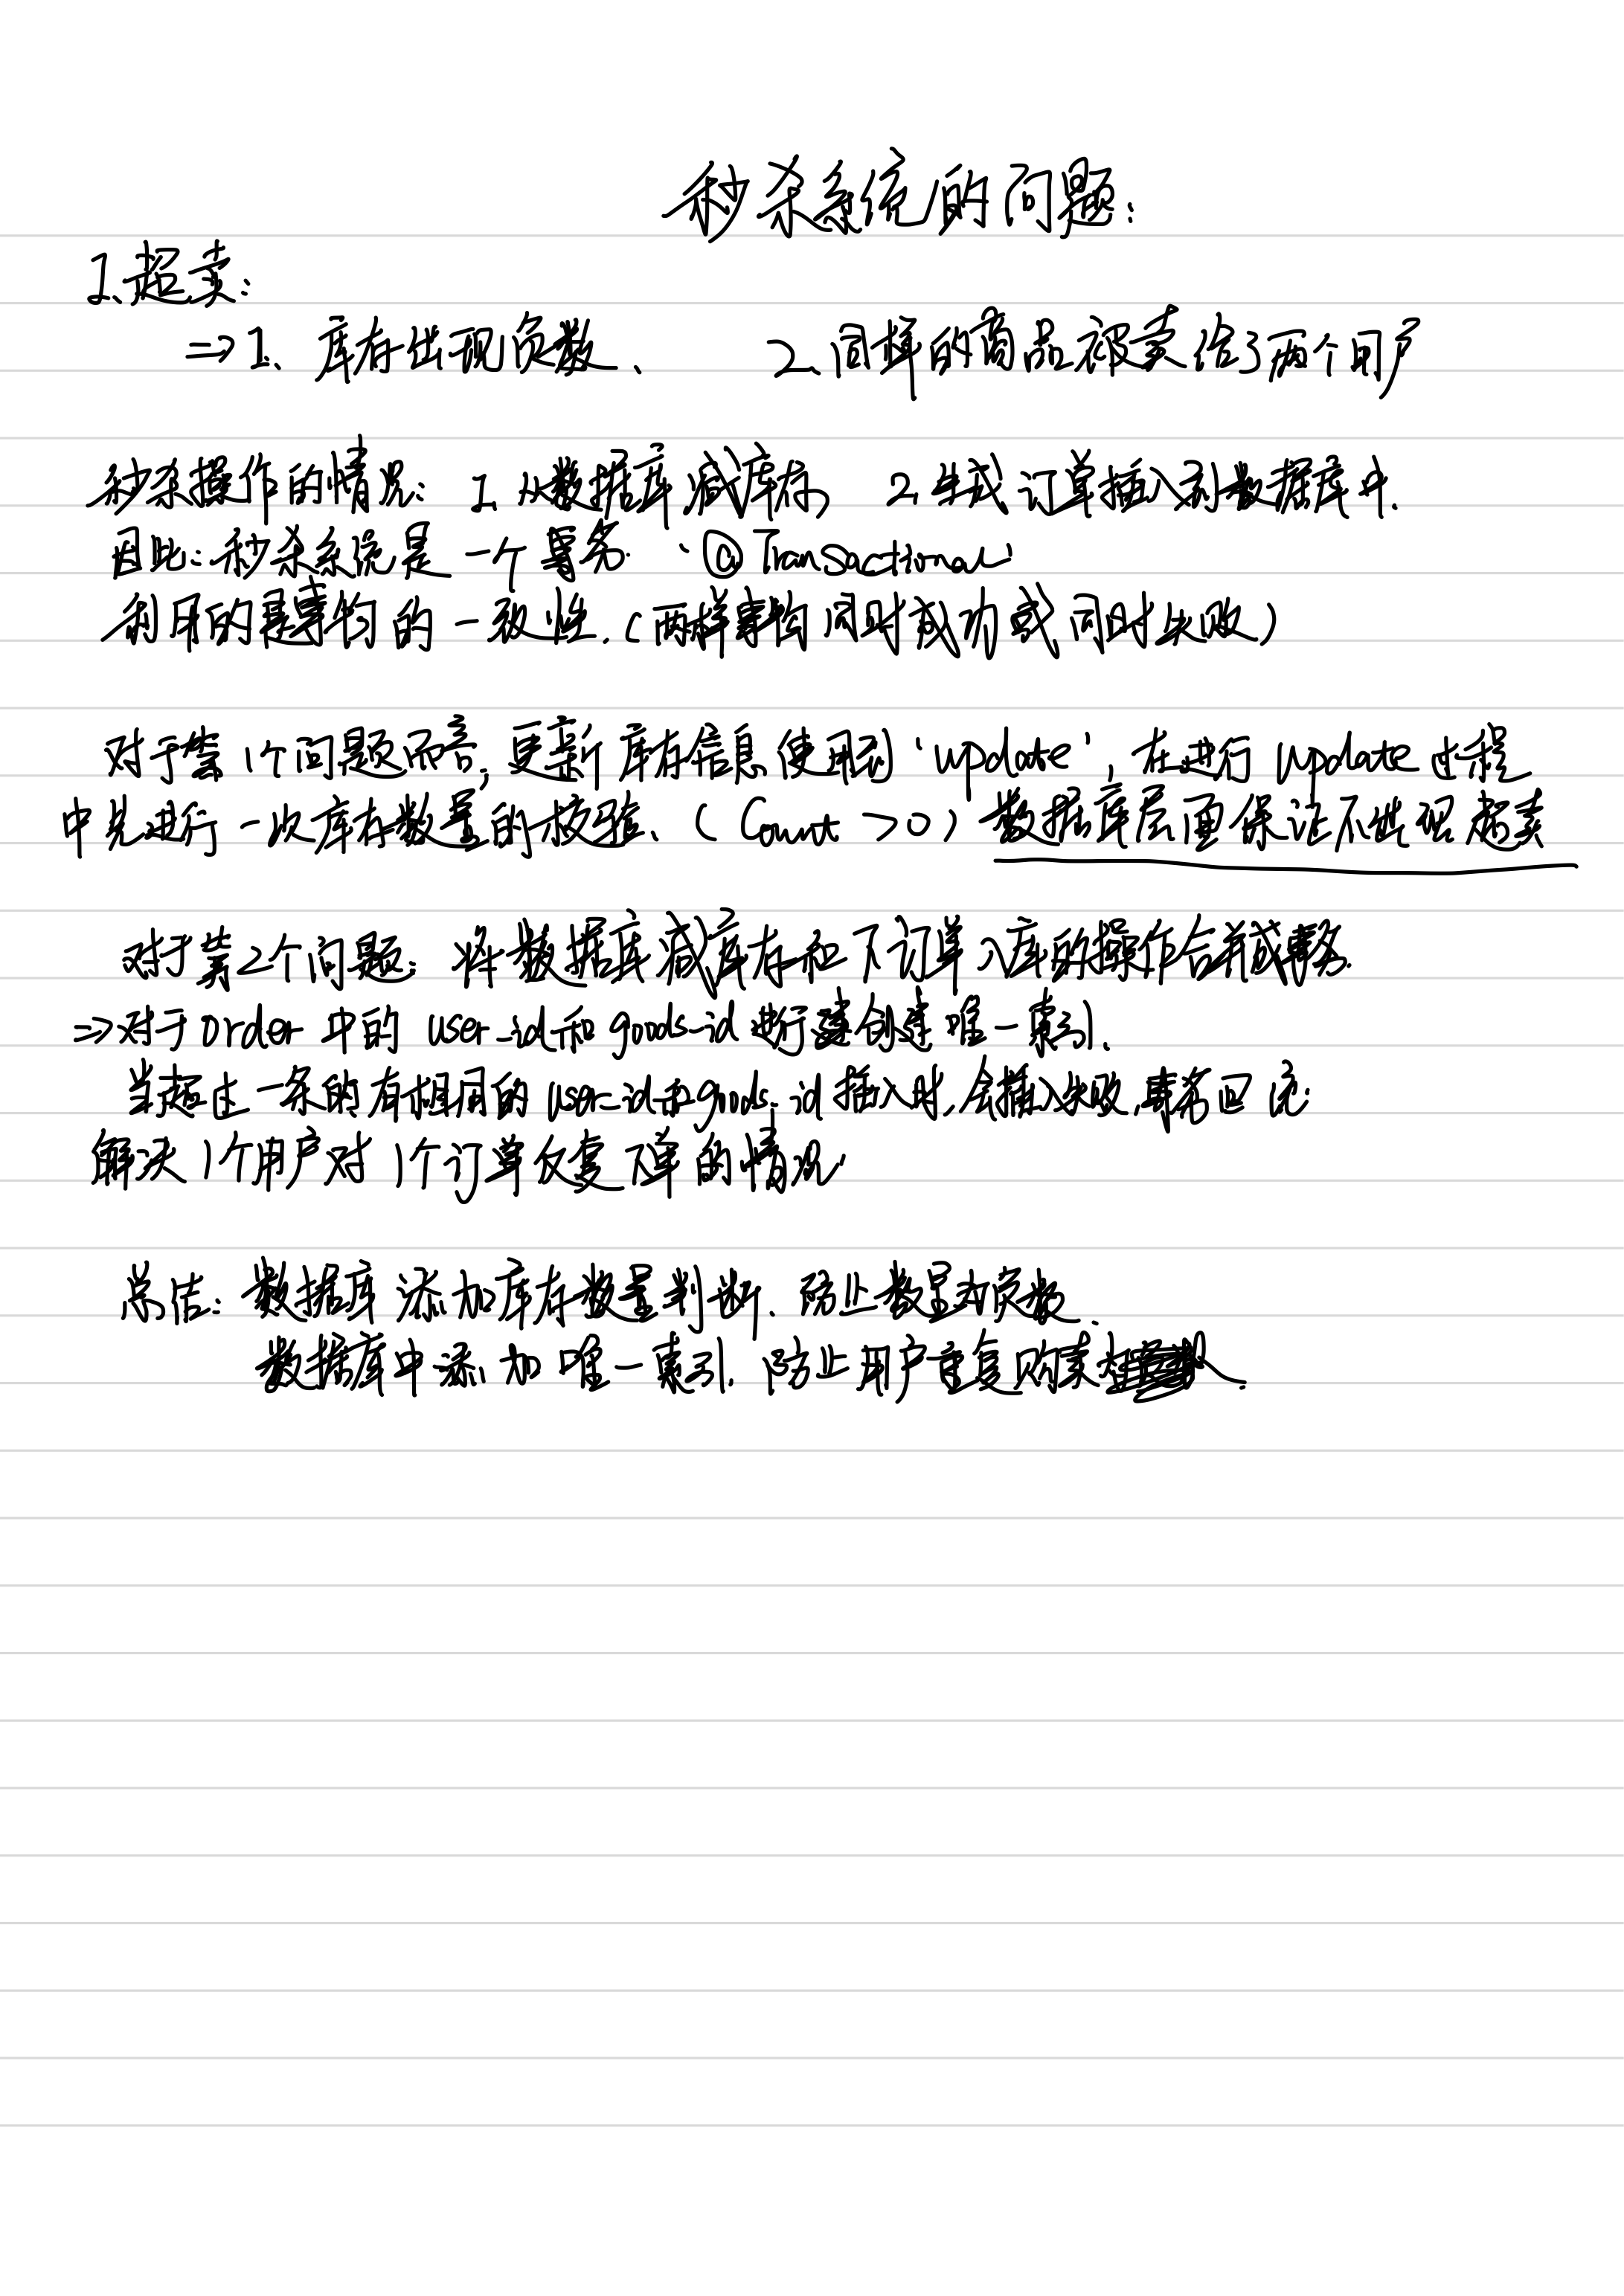 秒杀系统的问题:
1、超卖:
=>1、库存出现负数、 2、同样的商品被卖给了两个用户
秒杀操作的情况: 1、从数据库减库存, 2、生成订单插入到数据库中.
因此:秒杀系统是一个事务. @Transactional
利用的是事物的一致性.(两样事物同时成功或同时失败)
对于第1个问题而言,更新库存信息使用到'update',在进行update过程
中先进行一次库存数量的校验、(Count >0)数据库层面保证不出现超卖
对于第2个问题: 将数据库减库存和下订单入库的操作合并成事务.
=>对于order中的 user_id和goods_id进行建创建唯一索引.
当超过一条的有相同的user_id和goods_id插入时,会插入失败,事务回滚.
解决1个用户对1个订单反复下单的情况
总结: 数据库添加库存数量判断. 防止数量为负数.
数据库中添加唯一索引. 防止用户重复购卖.